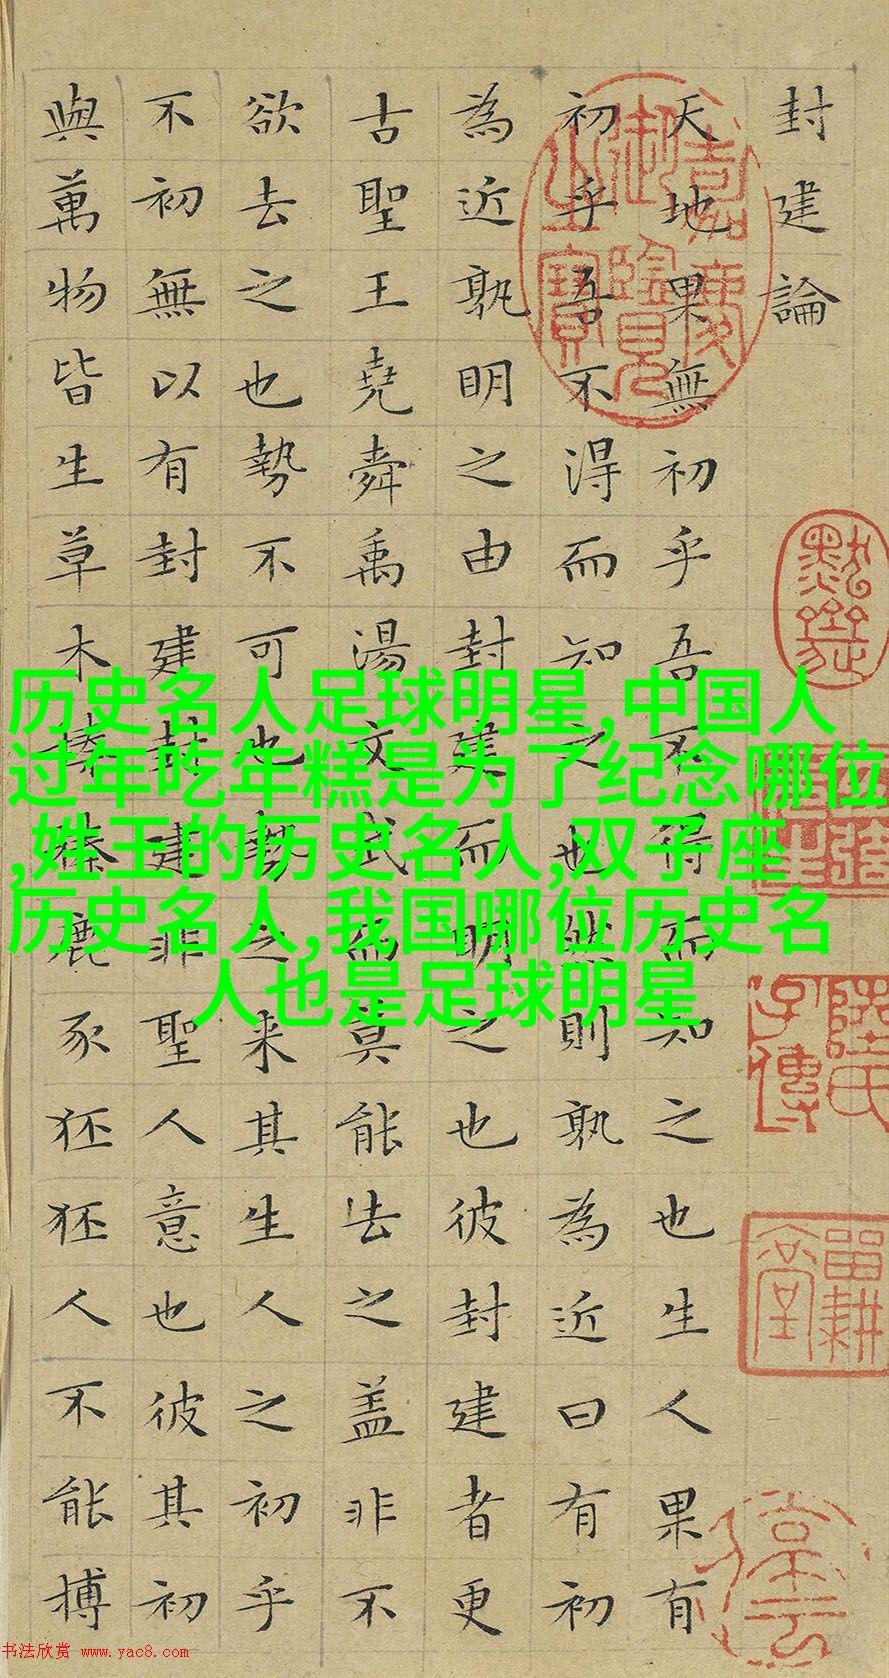 封建論
天地果無初乎吾不得而知之也生人果有
初乎吾不得而知之也然則孰為近曰有初
為近孰明之由封建而明之也彼封建者更
古聖王堯舜禹湯文武而莫能去之蓋非不
欲去之也勢不可也勢之来其生人之初乎
不初無以有封建封建非聖人意也彼其初
與萬物皆生草木榛榛鹿豕狉狉人不能搏
嘉慶御覽之寶
陸氏子傳
留耕堂
历史名人足球明星,中国人
过年吃年糕是为了纪念哪位
,姓王的历史名人,双子座
历史名人,我国哪位历史名
人也是足球明星
书法欣赏 www.yac8.com